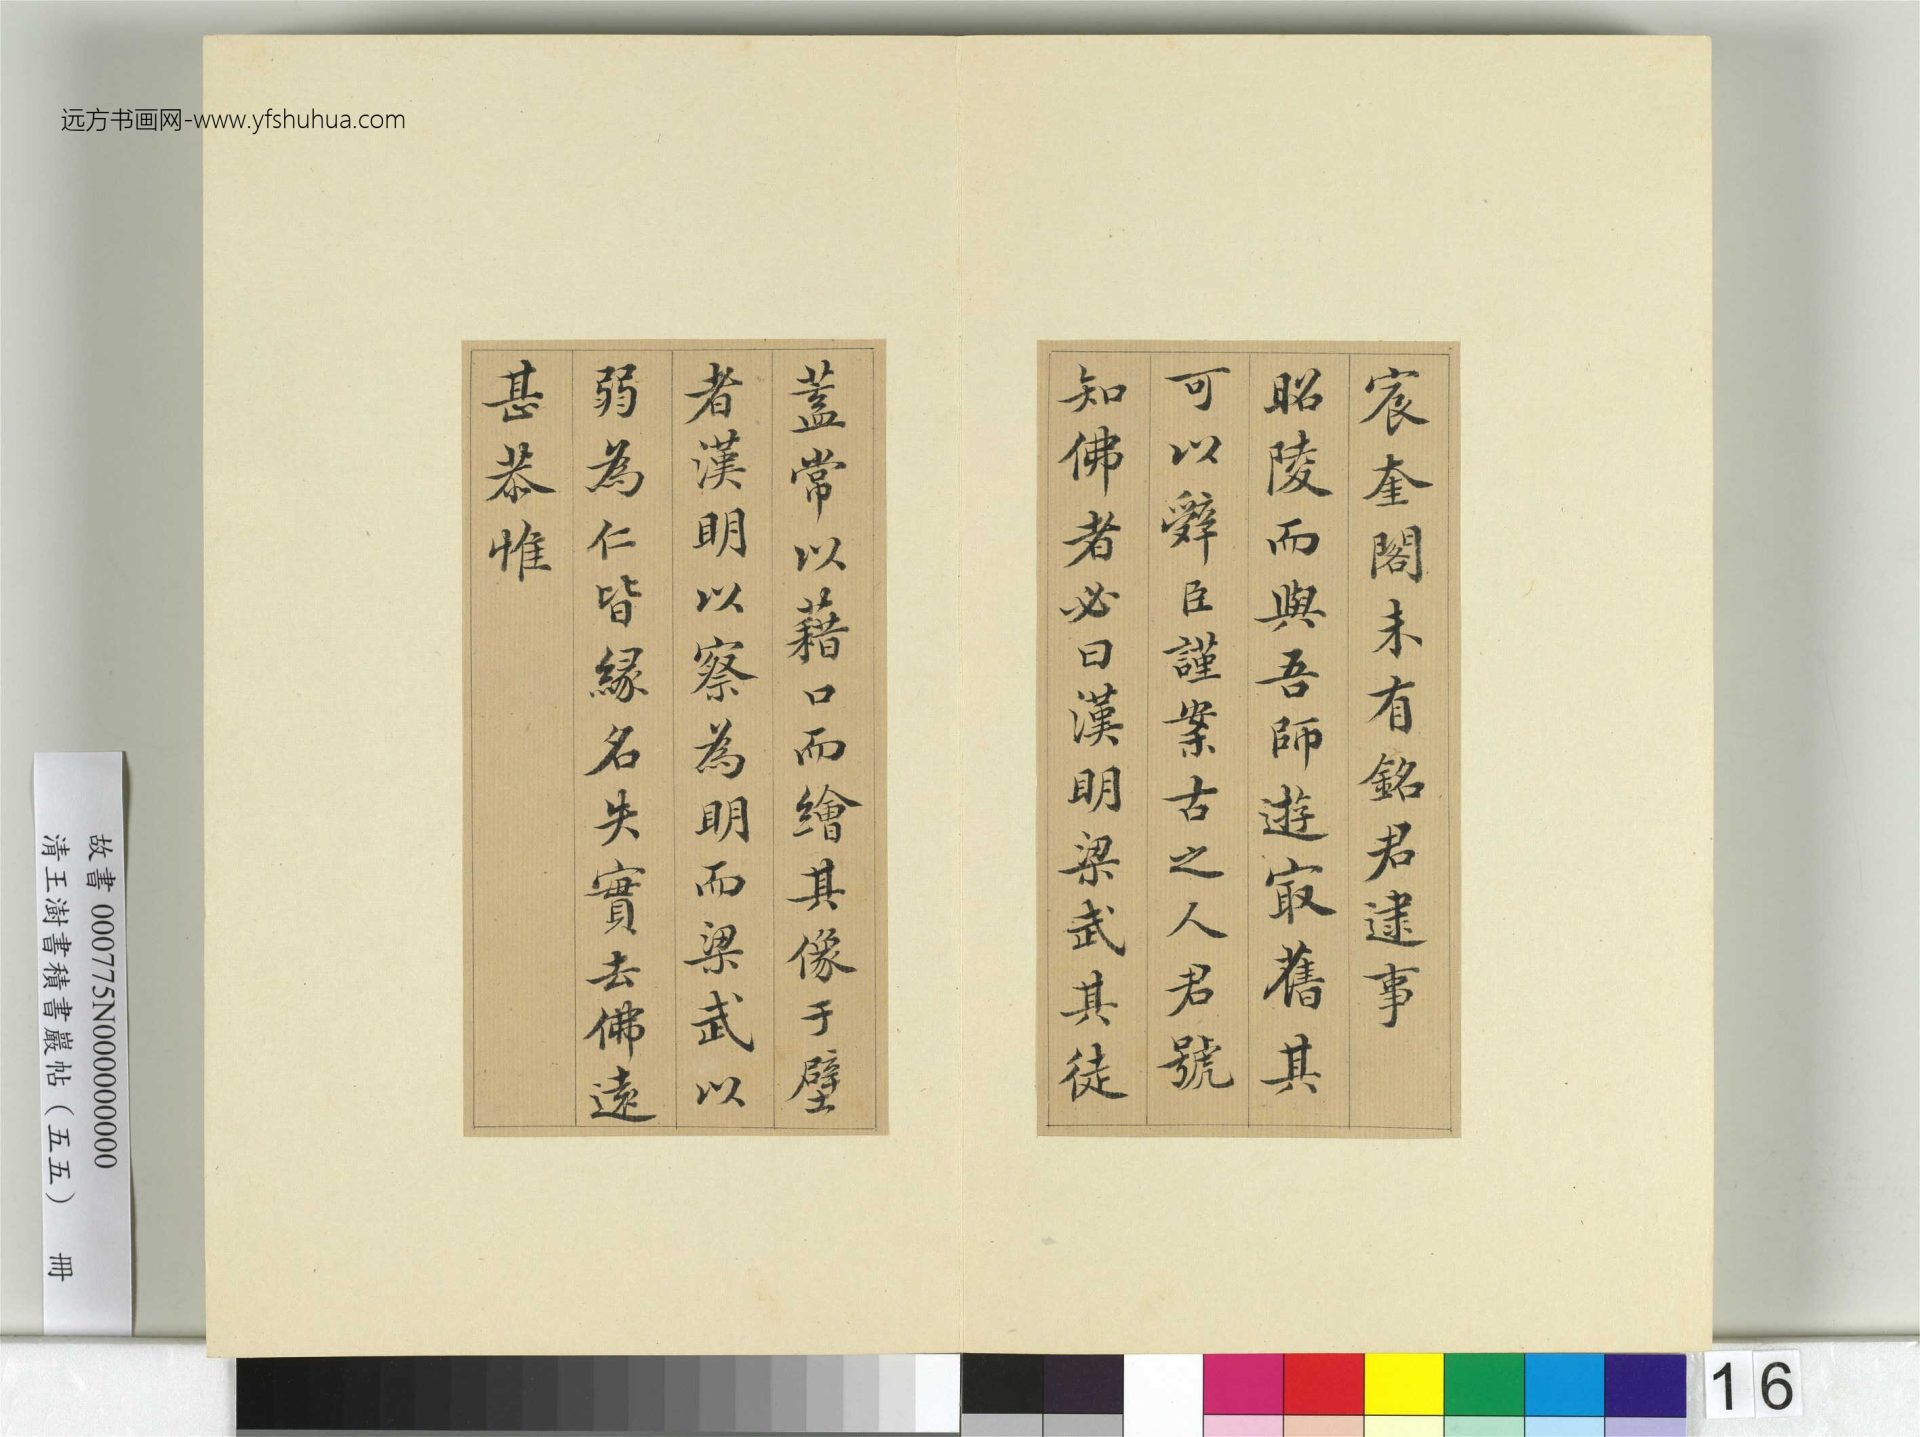 宸奎閣未有銘君逮事
昭陵而與吾師遊㝡舊其
可以辤臣謹案古之人君號
知佛者必曰漢明梁武其徒
蓋常以藉口而繪其像于壁
者漢明以察為明而梁武以
弱為仁皆緣名失實去佛遠
甚恭惟
远方书画网-www.yfshuhua.com
故書 000775N000000000
清王澍書積書巖帖（五五） 冊
16